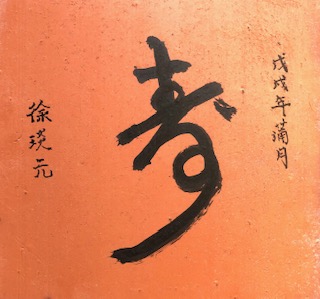 戊戌年蒲月
寿
徐瑛元